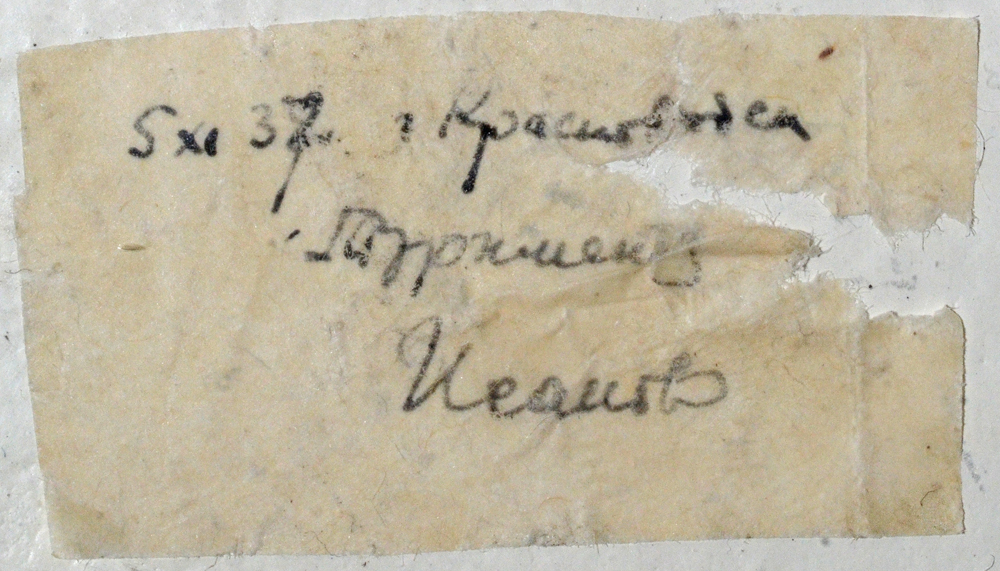 5 XI 37г. г Красноводск
Туркмени
Исаков